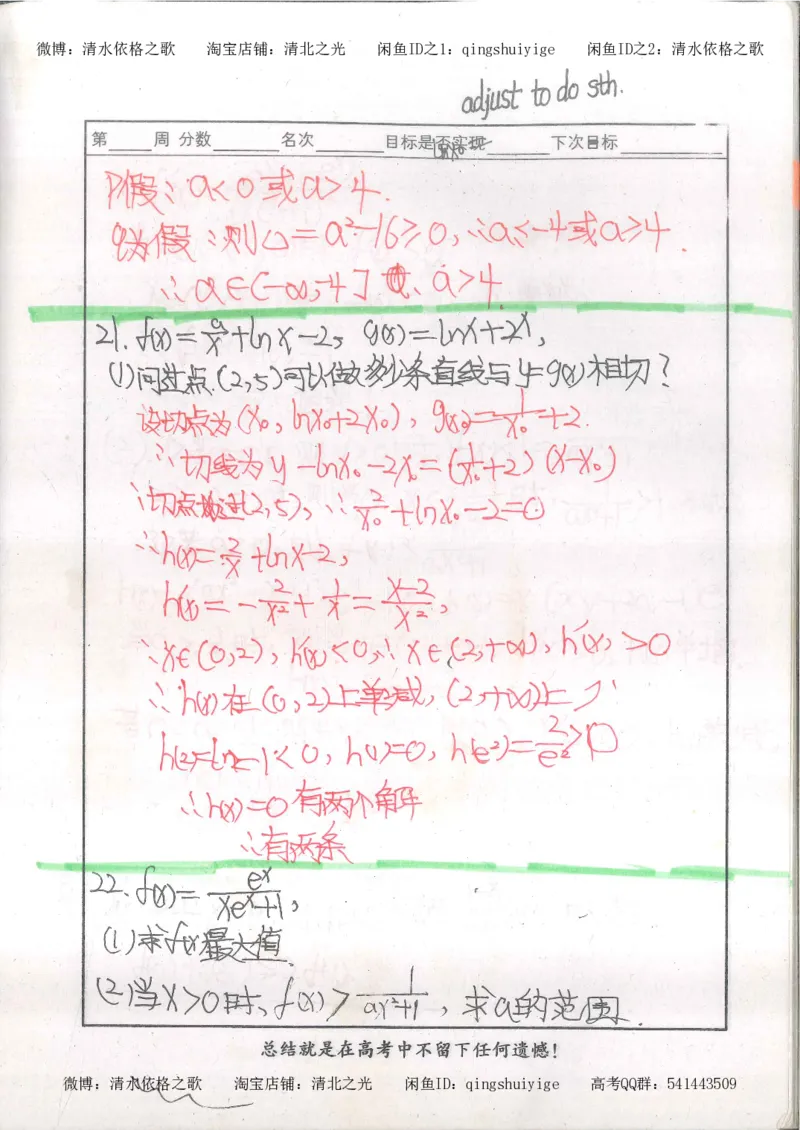 微博：清水依格之歌 淘宝店铺：清北之光 闲鱼ID之1：qingshuiyige 闲鱼ID之2：清水依格之歌
adjust to do sth.
第 周 分数 名次 目标是否实现 下次目标
lnx₀
P假：a<0或a>4.
q为假：则△=a²-16≥0，∴a≤-4或a≥4.
∴a∈(-∞,-4] a>4.
21. f(x)=a/x+lnx-2，g(x)=lnx+2x，
(1)问过点(2,5)可以做多少条直线与y=g(x)相切？
设切点为(x₀, lnx₀+2x₀)，g'(x₀)=1/x₀+2.
∴切线为y-lnx₀-2x₀=(1/x₀+2)(x-x₀)
∵切点过(2,5)，∴2/x₀+lnx₀-2=0
∴h(x)=2/x+lnx-2，
h'(x)=-2/x²+1/x=x-2/x²，
∴x∈(0,2)，h'(x)<0，∴x∈(2,+∞)，h'(x)>0
∴h(x)在(0,2)上单减，(2,+∞)上↗
h(2)=ln2-1<0，h(1)=0，h(e²)=2/e²>0
∴h(x)=0有两个解
∴有两条
22. f(x)=eˣ/xeˣ+1，
(1)求f(x)最大值
(2)当x>0时，f(x)>1/ax²+1，求a的范围.
总结就是在高考中不留下任何遗憾！
微博：清水依格之歌 淘宝店铺：清北之光 闲鱼ID：qingshuiyige 高考QQ群：541443509